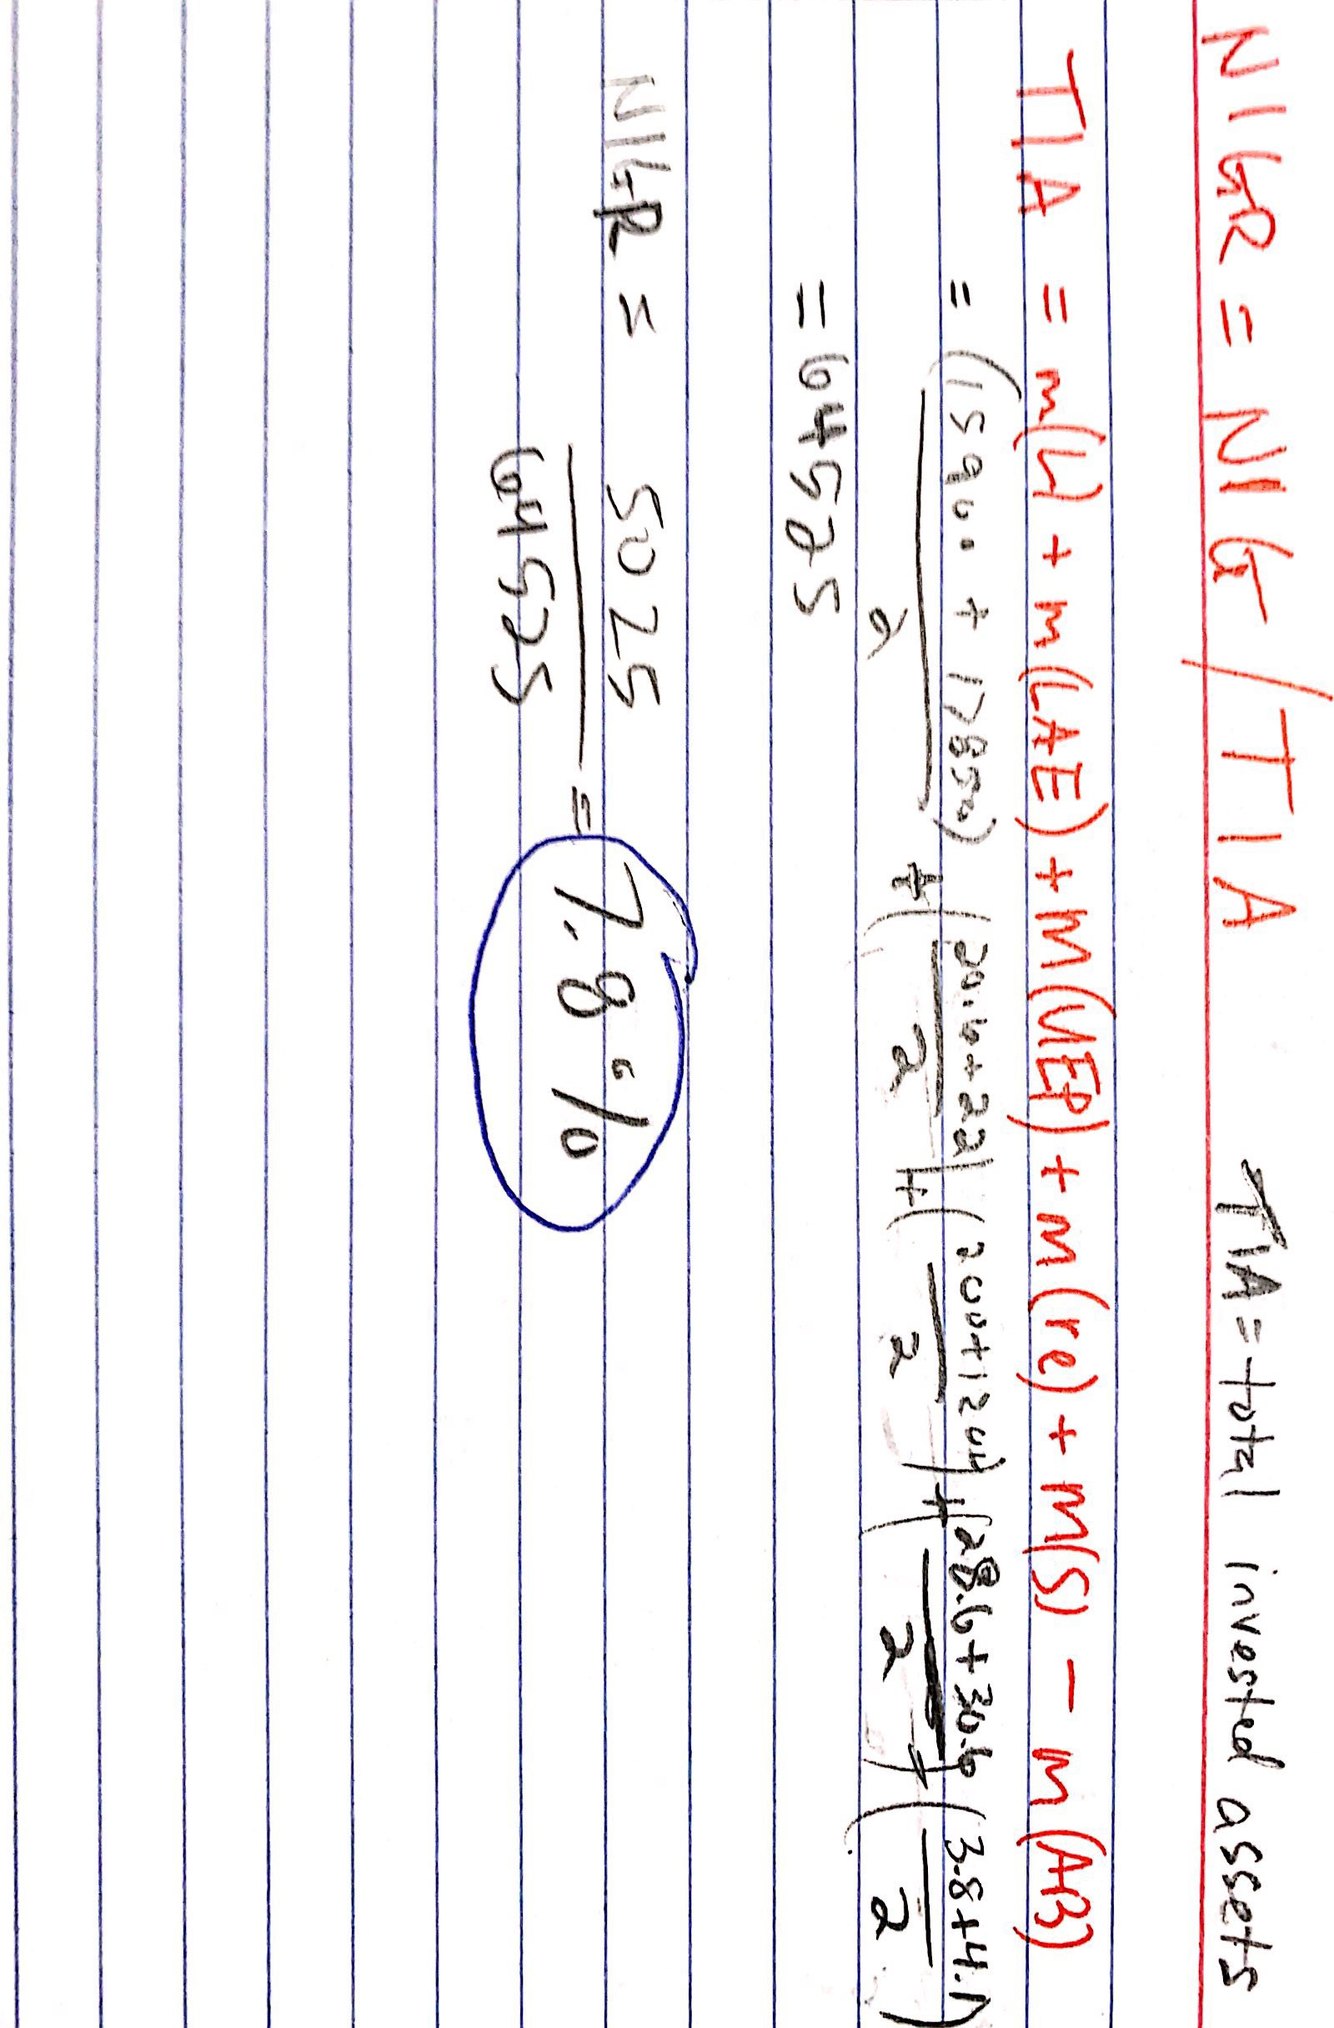 NIGR = NIG/TIA TIA = total invested assets
TIA = m(L) + m(LAE) + m(UEP) + m(re) + m(S) - m(AB)
= (15900 + 17850)/2 + (20.6+22)/2 + (200+1204)/2 + (28.6+30.6)/2 + (3.8+4.1)/2
= 64525
NIGR = 5025/64525 = 7.8%